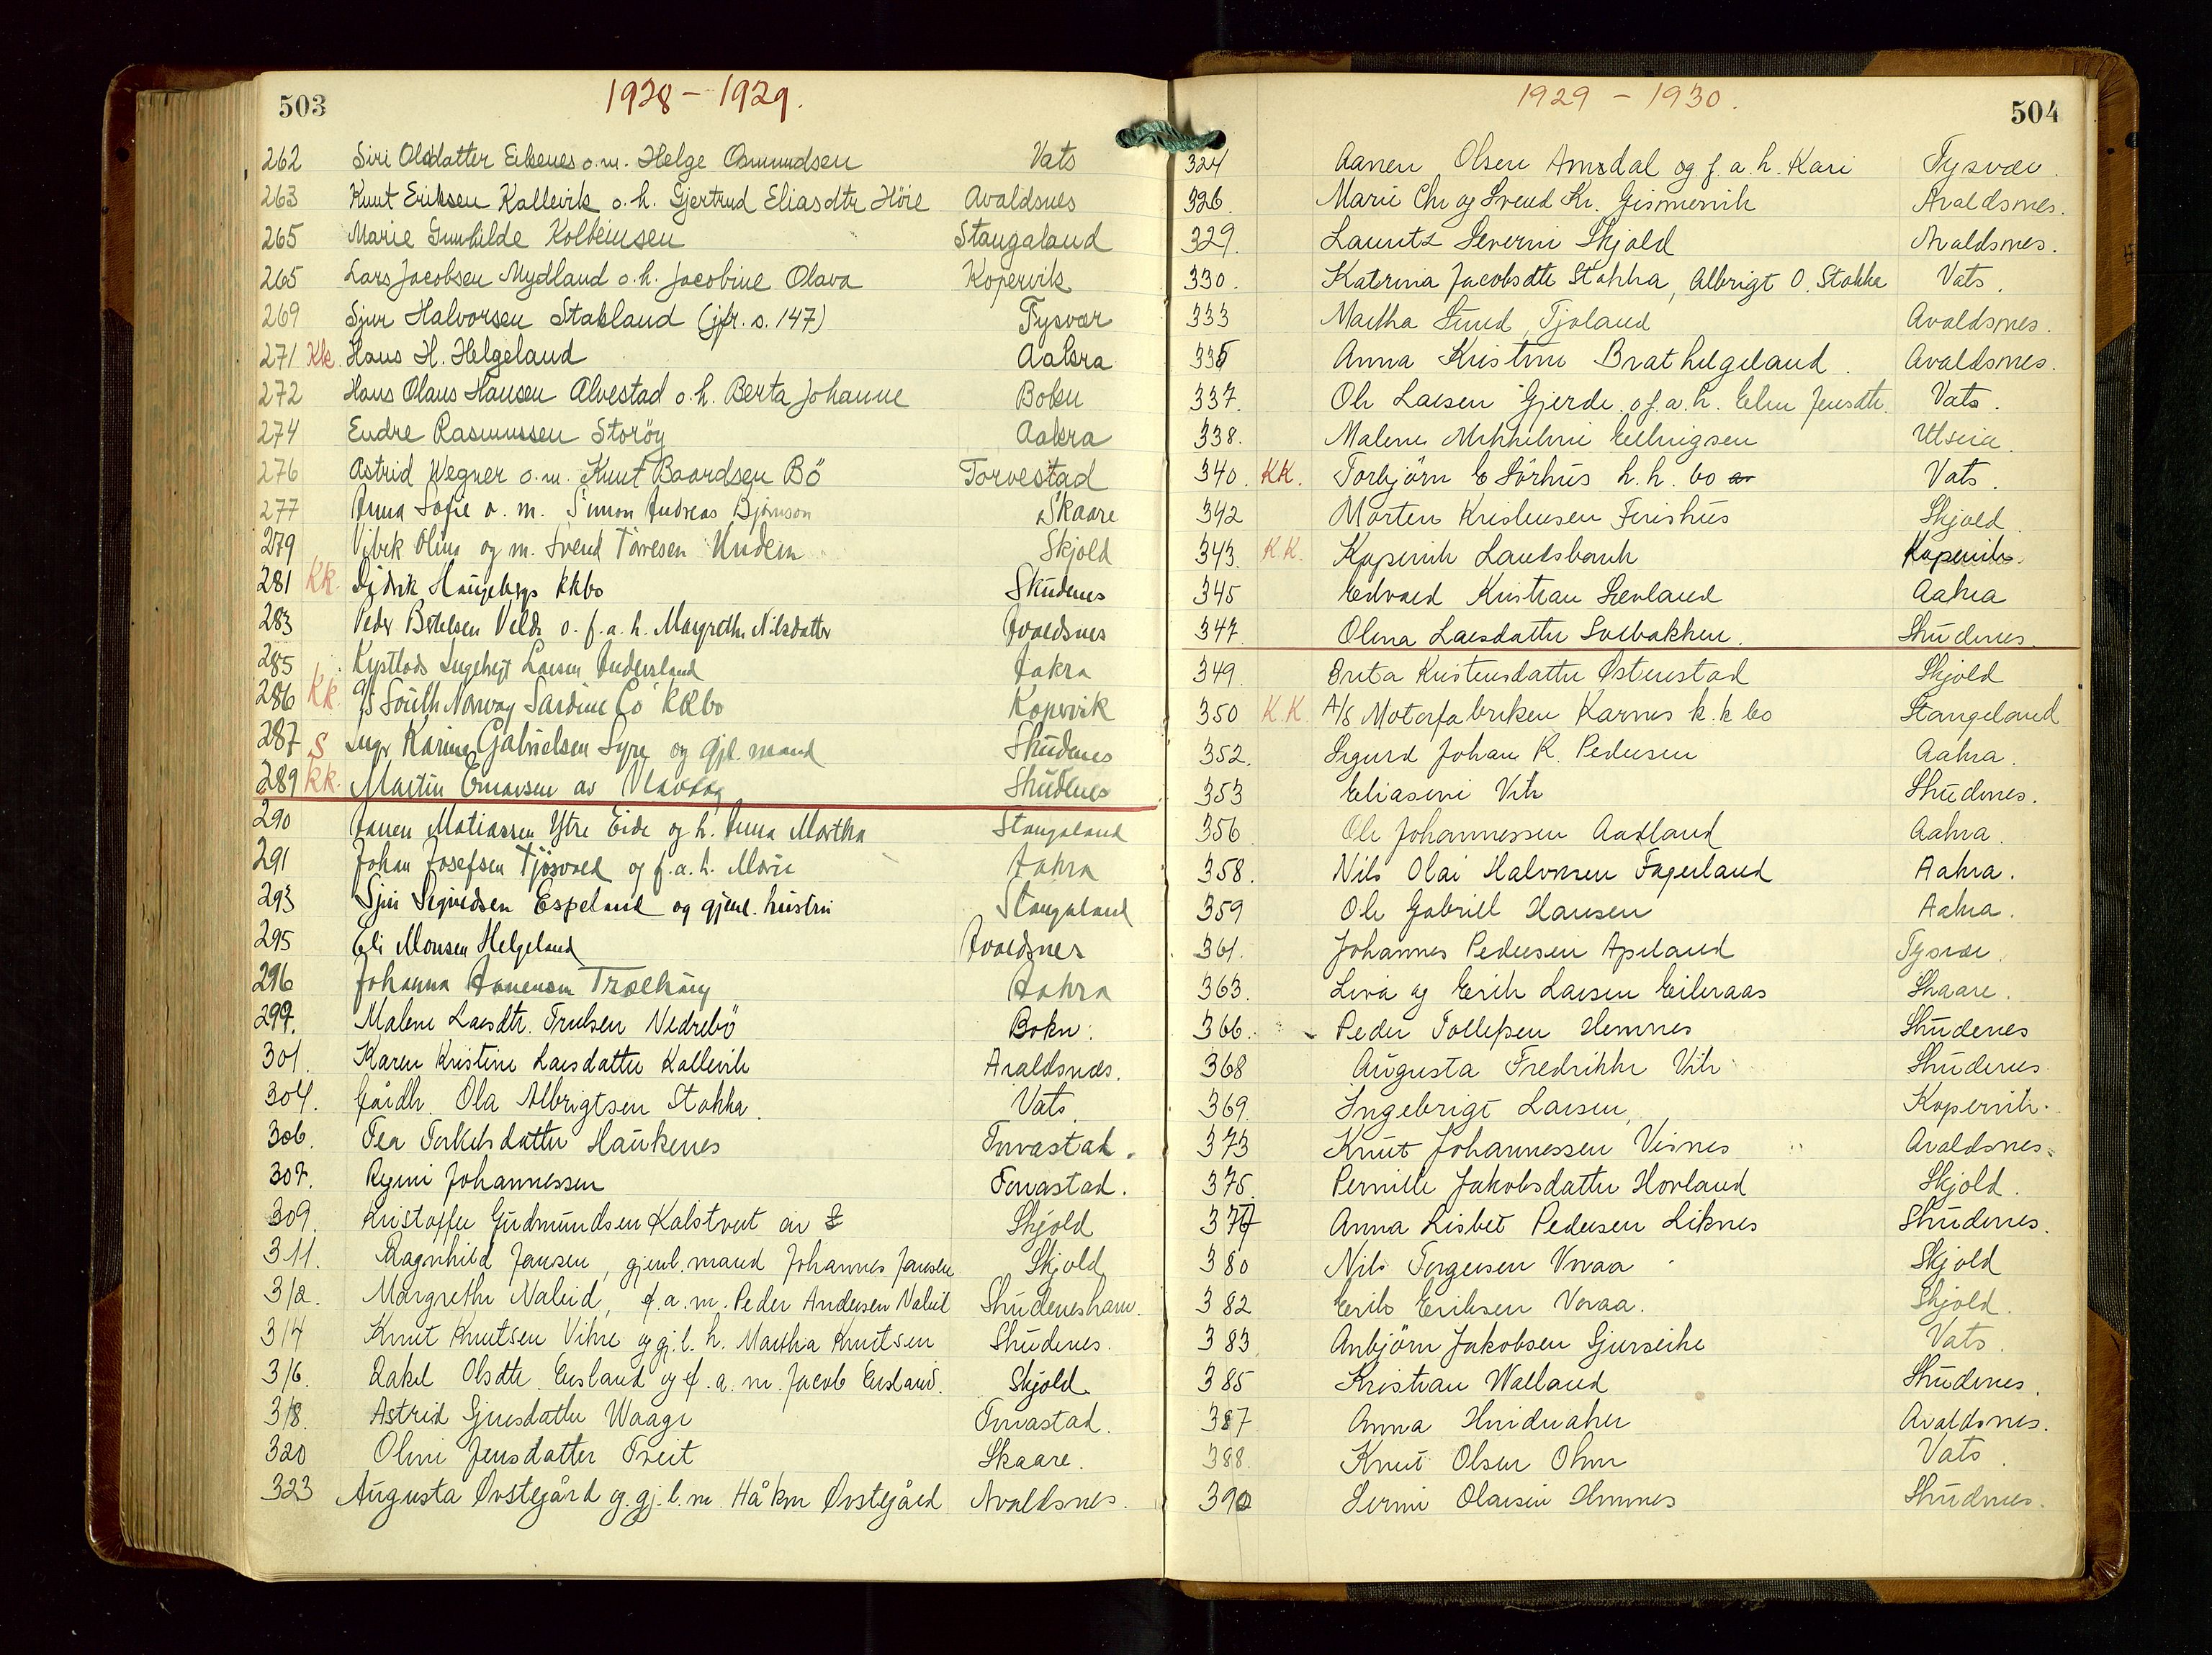 503
1928-1929.
262 Siri Olsdatter Eikenes o.m. Helge Osmundsen Vats
263 Knut Eriksen Kallevik o.h. Gjertrud Eliasdtr Höie Avaldsnes
265 Marie Gunhilde Kolbeinsen Stangaland
265 Lars Jacobsen Mydland o.h. Jacobine Olava Kopervik
269 Sjur Halvorsen Stakland (jfr. s. 147) Tysvær
271 Kk. Hans H. Helgeland Aakra
272 Hans Olaus Hansen Alvestad o.h. Berta Johanne Bokn
274 Endre Rasmussen Storöy Aakra
276 Astrid Wegner o.m. Knut Baardsen Bö Torvestad
277 Anna Sofie o.m. Simon Andreas Björnson Skaare
279 Vibek Oline og m. Svend Tóresen Undem Skjold
281 Kk. Didrik Haugebergs kkbo Skudenes
283 Peder Botelsen Velde o.f.a.h. Margrethe Nilsdatter Avaldsnes
285 Ingebrigt Larsen Andersland Aakra
286 Kk. A/S South Norway Sardine Co KKbo Kopervik
287 S Ingr. Karine Gabrielsen Syre og gjl. mand Skudenes
289 Kk. Martin Omarsen av Skudenes
290 Janen Matiassen Ytre Eide og h. Anna Martha Stangaland
291 Johan Josefsen Tjösvold og f.a.h. Marie Aakra
293 Sjur Sigurdsen Espeland og gjenl. hustru Stangaland
295 Eli Monsen Helgeland Avaldsnes
296 Johanna Aanensen Trælhaug Aakra
299. Malene Larsdtr. Trulsen Nedrebö Bokn.
301. Karen Kristine Larsdatter Kallevik Avaldsnes.
304. Gårdbr. Ola Albrigtsen Stakka. Vats.
306. Tea Terkelsdatter Haukenes Torvastad.
307. Regine Johannessen Torvastad.
309. Kristoffer Gudmundsen Kalstveit av Skjold
311. Ragnhild Jansen, gjenl. mand Johannes Jansen Skjold
312. Margrethe Naleid, f.a.m. Peder Andersen Naleid Skudeneshavn.
314 Knut Knutsen Vikre og gj.l.h. Martha Knutsen Skudenes.
316. Rakel Olsdtr. Ersland og f.a.m. Jacob Ersland. Skjold.
318. Astrid Sjursdatter Waage Torvastad.
320 Oline Jensdatter Treit Skaare.
323 Augusta Østegård og gj.l.m. Håkon Østegård Avaldsnes.
1929 - 1930.
504
324 Aanen Olsen Amdal og f.a.h. Kari Tysvær.
326. Marie Chr og Svend Kr. Gismervik Avaldsnes.
329. Lauritz Severin Skjold Avaldsnes.
330. Katrina Jacobsdtr Stakka, Albrigt O. Stakka Vats.
333 Martha Lund, Tjoland Avaldsnes.
335 Anna Kristine Brathelgeland. Avaldsnes.
337. Ole Larsen Gjerde o.f.a.h. Elen Jensdtr. Vats.
338. Malene Mikkeline Ellingsen Utsira.
340. KK. Torbjörn E Sörhus k.k. bo Vats.
342 Morten Kristensen Fireshus Skjold.
343. K.K. Kopervik Landsbank Kopervik.
345 Edvard Kristian Sevland Aakra
347. Olina Larsdatter Solbakken. Skudenes.
349. Brita Kristensdatter Østenstad Skjold
350 K.K. A/S Motorfabriken Karnes k.k bo Stangeland
352. Sigurd Johan R. Pedersen Aakra.
353 Eliasine Vik Skudenes.
356 Ole Johannessen Aadland Aakra.
358. Nils Olai Halvorsen Fagerland Aakra.
359 Ole Gabriel Hansen Aakra.
361. Johannes Pedersen Apeland Tysvær.
363. Liva og Erik Larsen Eikeraas Skaare.
366. Peder Tollefsen Hemnes Skudenes
368 Augusta Fredrikke Vik Skudenes
369. Ingebrigt Larsen, Kopervik.
373 Knut Johannessen Visnes Avaldsnes.
375. Pernille Jakobsdatter Hovland Skjold.
377 Anna Lisbet Pedersen Liknes Skudenes.
380 Nils Torgersen Vraa Skjold
382 Erik Eriksen Vraa. Skjold.
383. Anbjörn Jakobsen Gjerseike Vats.
385 Kristian Walland Skudenes.
387 Anna Hvidevaker Avaldsnes.
388. Knut Olsen Olme Vats.
390 Serine Olavsen Hemnes Skudenes.